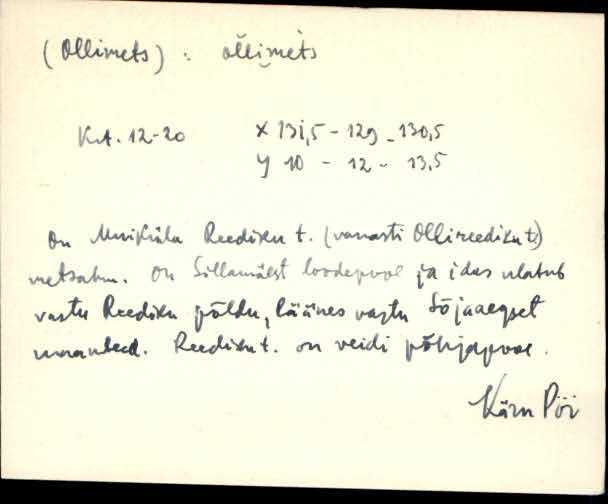 (Ollimets) : ŏl̆limèts
KA. 12-20 X 131,5 - 129 - 130,5
Y 10 - 12 - 13,5
On Reediku t. (vanasti Ollireediku t.)
metsatum. On Sillamäest loodepool ja idas ulatub
vastu Reediku põldu, läänes vastu Sõjaaegset
Reediku t. on veidi põhjapool.
Kärn Pöi